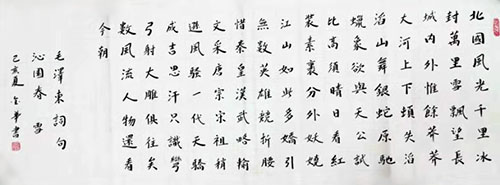 北國風光千里冰
封萬里雪飄望長
城內外惟餘莽莽
大河上下頓失滔
滔山舞銀蛇原馳
蠟象欲與天公試
比高須晴日看紅
裝素裹分外妖嬈
江山如此多嬌引
無數英雄競折腰
惜秦皇漢武略輸
文采唐宗宋祖稍
遜風騷一代天驕
成吉思汗只識彎
弓射大雕俱往矣
數風流人物還看
今朝
毛澤東詞句
沁園春 雪
己亥夏 金華書